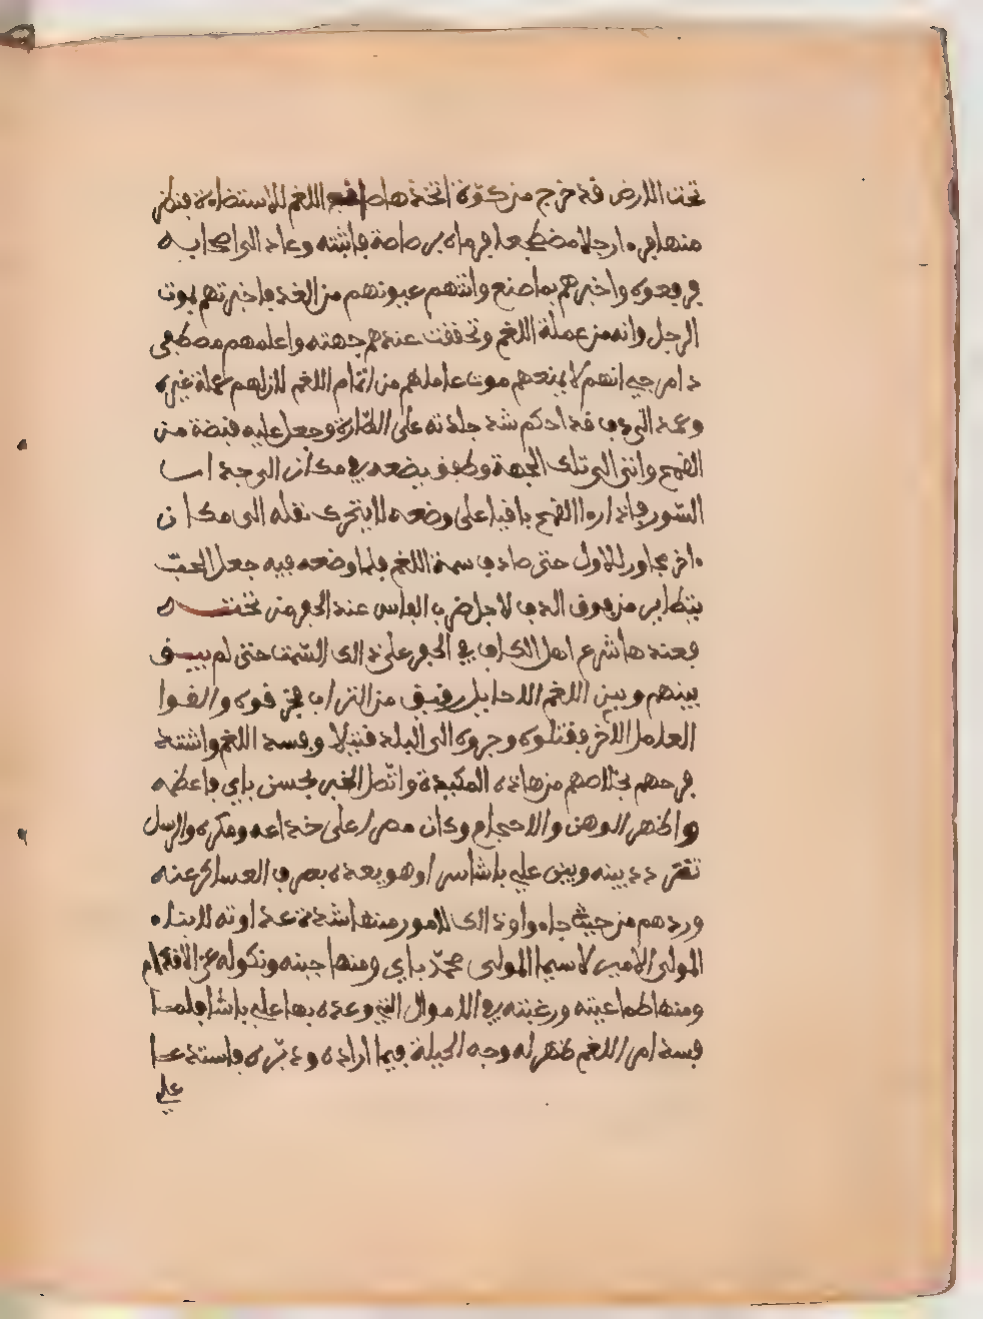 تحت الارض قد خرج من كوة اتخذها صانع اللغم للاستضاءة فنظر
منها فرءا رجلا مضطجعا فرماه برصاصة فاثبته وعاد الى اصحابه
فرفعوه واخبرهم بما صنع واتتهم عيونهم من الغد فاخبرتهم بموت
الرجل وانه من عملة اللغم وتحققت عندهم جهته واعلمهم مصطفى
دامرجي انهم لا يمنعهم موت عاملهم من اتمام اللغم لان لهم عملة غيره
وعمد الى دف قد احكم شد جلدته على الطارة وجعل عليه قبضة من
القمح واتى الى تلك الجهة وطفق يضعه في مكان الى جد ا س
السور فاذا رءا القمح باقيا على وضعه لا يتحرك نقله الى مكان
ءاخر مجاور للاول حتى صادف سمة اللغم فلما وضعه فيه جعل الحب
يتطاير من فوق الدف لاجل ضرب الفاس عند الحفر من تحته
فعندها شرع اهل الكاف في الحفر على ذالك السمت حتى لم يبق
بينهم وبين اللغم الا حايل رقيق من التراب فخرقوه والفوا
العامل الاخر فقتلوه وجروه الى البلد قتيلا وفسد اللغم واشتد
فرحهم بخلاصهم من هاذه المكيدة واتصل الخبر بحسن باي فاعظمه
واظهر الوهن والاحجام وكان مصرا على خداعه ومكره والرسل
تتردد بينه وبين علي باشا سرا وهو يعده بصرف العساكر عنه
وردهم من حيث جاءوا وذالك لامور منها شدة عداوته لابناء
المولى الامير لاسيما المولى محمد باي ومنها جبنه ونكوله عن الاقدام
ومنها طماعيته ورغبته في الاموال التي وعده بها علي باشا فلما
فسد امر اللغم ظهر له وجه الحيلة فيما اراده ودبره فاستدعا
علي